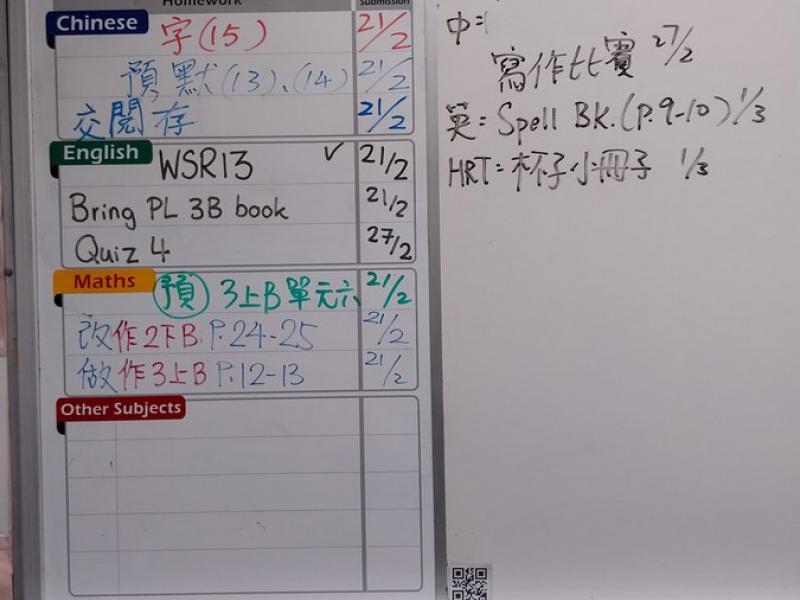 Homework
Submission
Chinese
字(15) 21/2
預默(13)、(14) 21/2
交閱存 21/2
English
WSR13 ✓ 21/2
Bring PL 3B book 21/2
Quiz 4 27/2
Maths
預 3上B單元六 21/2
改作2下B P.24-25 21/2
做作3上B P.12-13 21/2
Other Subjects
中:
寫作比賽 27/2
英: Spell BK.(P.9-10) 1/3
HRT: 杯子小冊子 1/3